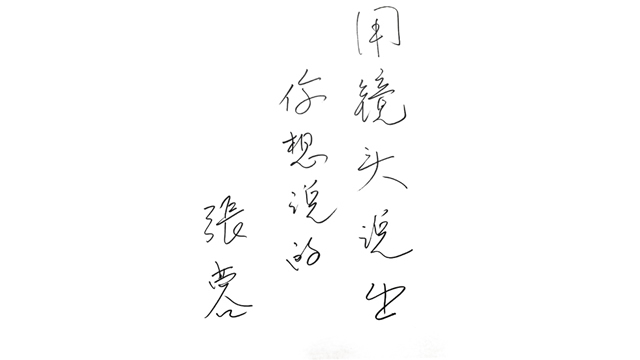 用镜头说出
你想说的
張蓉